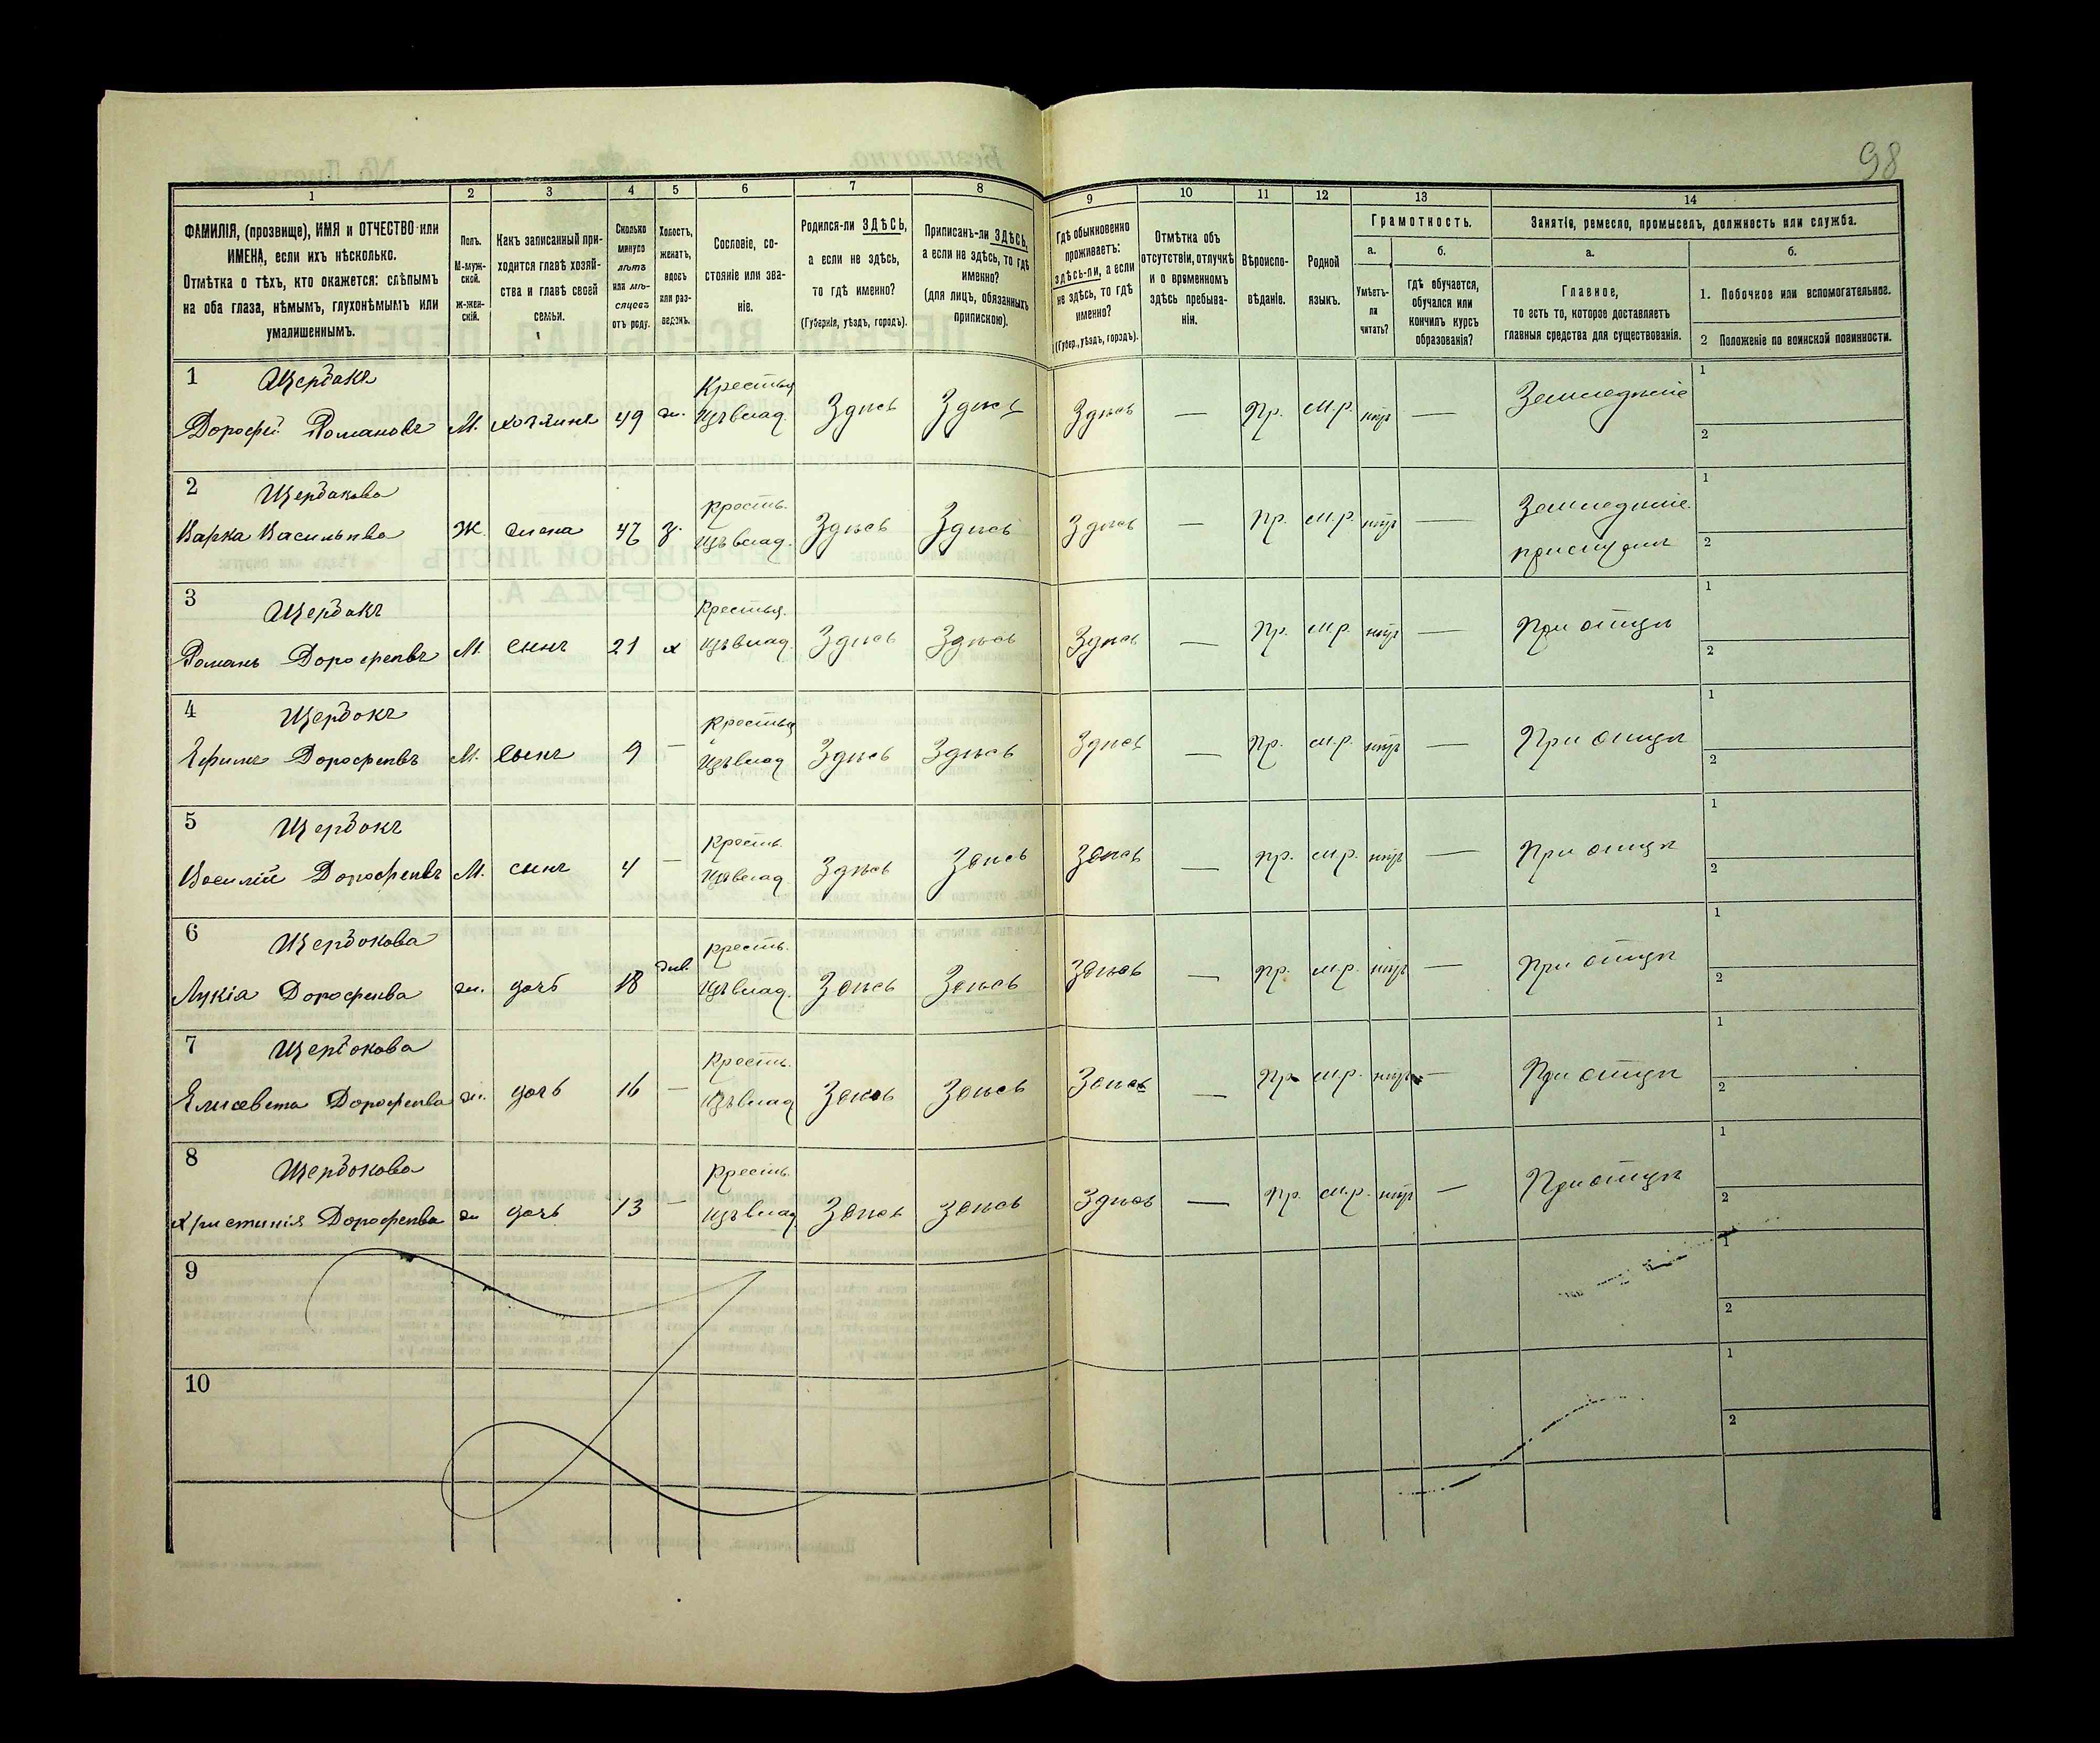 98
1 2 3 4 5 6 7 8 9 10 11 12 13 14
ФАМИЛІЯ, (прозвище), ИМЯ и ОТЧЕСТВО или
ИМЕНА, если ихъ нѣсколько.
Отмѣтка о тѣхъ, кто окажется: слѣпымъ
на оба глаза, нѣмымъ, глухонѣмымъ или
умалишеннымъ.
Полъ.
М-муж-
ской.
ж-жен-
скій.
Какъ записанный при-
ходится главѣ хозяй-
ства и главѣ своей
семьи.
Сколько
минуло
лѣтъ
или мѣ-
сяцевъ
отъ роду.
Холостъ,
женатъ,
вдовъ
или раз-
веденъ.
Сословіе, со-
стояніе или зва-
ніе.
Родился-ли ЗДѢСЬ,
а если не здѣсь,
то гдѣ именно?
(Губернія, уѣздъ, городъ).
Приписанъ-ли ЗДѢСЬ,
а если не здѣсь, то гдѣ
именно?
(для лицъ, обязанныхъ
припискою).
Гдѣ обыкновенно
проживаетъ:
здѣсь-ли, а если
не здѣсь, то гдѣ
именно?
(Губер., уѣздъ, городъ).
Отмѣтка объ
отсутствіи, отлучкѣ
и о временномъ
здѣсь пребыва-
ніи.
Вѣроиспо-
вѣданіе.
Родной
языкъ.
Грамотность.
а.
Умѣетъ-
ли
читать?
б.
гдѣ обучается,
обучался или
кончилъ курсъ
образованія?
Занятіе, ремесло, промыселъ, должность или служба.
а.
Главное,
то есть то, которое доставляетъ
главныя средства для существованія.
б.
1. Побочное или вспомогательное.
2 Положеніе по воинской повинности.
1 Щербакъ Крестья 1
Дорофей Романовъ М. хозяинъ 49 ж. изъ влад. Здѣсь Здѣсь Здѣсь — Пр. м.р. нѣтъ — Земледѣліе 2
2 Щербакова Кресть. 1
Варка Васильева Ж. жена 47 з. изъ влад. Здѣсь Здѣсь Здѣсь — Пр. м.р. нѣтъ — Земледѣліе 2
3 Щербакъ Крестья. 1
Романъ Дорофеевъ М. сынъ 21 х изъ влад. Здѣсь Здѣсь Здѣсь — Пр. м.р. нѣтъ — При отцѣ 2
4 Щербокъ Крестья 1
Ефимъ Дорофеевъ М. сынъ 9 — изъ влад. Здѣсь Здѣсь Здѣсь — Пр. м.р. нѣтъ — При отцѣ 2
5 Щербокъ Кресть. 1
Василій Дорофеевъ М. сынъ 4 — изъ влад. Здѣсь Здѣсь Здѣсь — Пр. м.р. нѣтъ — При отцѣ 2
6 Щербокова Кресть. 1
Лукія Дорофеева ж. дочь 18 дѣв. изъ влад. Здѣсь Здѣсь Здѣсь — Пр. м.р. нѣтъ — При отцѣ 2
7 Щербокова Кресть. 1
Елисавета Дорофеева ж. дочь 16 — изъ влад Здѣсь Здѣсь Здѣсь — Пр. м.р. нѣтъ — При отцѣ 2
8 Щербокова Кресть. 1
Христинія Дорофеева ж дочь 13 — изъ влад Здѣсь Здѣсь Здѣсь — Пр. м.р. нѣтъ — При отцѣ 2
9 1
2
10 1
2